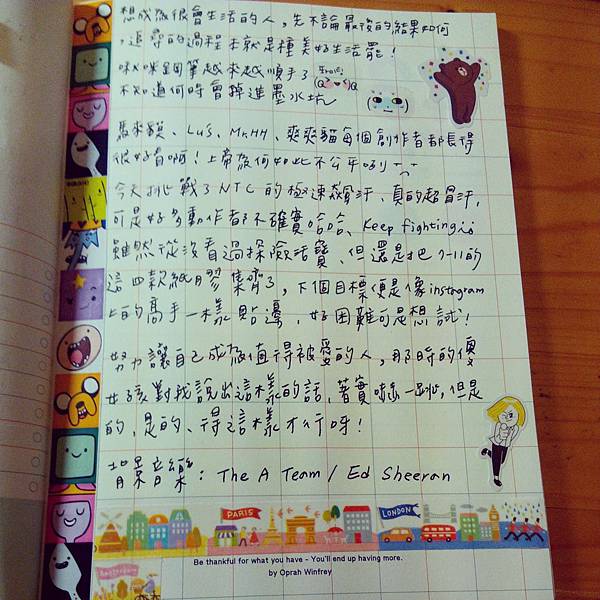 想成為很會生活的人，先不論最後的結果如何
，追尋的過程本就是種美好生活罷！
咪咪鋼筆越來越順手了
不知道何時會掉進墨水坑
馬來貘、Lu's、Mr.HH、爽爽貓每個創作者都長得
很好看啊！上帝為何如此不公平咧
今天挑戰了NTC的極速飆汗、真的超冒汗，
可是好多動作都不確實哈哈、Keep fighting
雖然從沒看過探險活寶、但還是把7-11的
這四款紙膠集齊了，下個目標便是像instagram
上的高手一樣貼邊，好困難可是想試！
努力讓自己成為值得被愛的人，那時的傻
女孩對我說出這樣的話，著實嚇一跳，但是
的，是的、得這樣才行呀！
背景音樂：The A Team / Ed Sheeran
PARIS
LONDON
Amsterdam
Be thankful for what you have - You'll end up having more.
by Oprah Winfrey